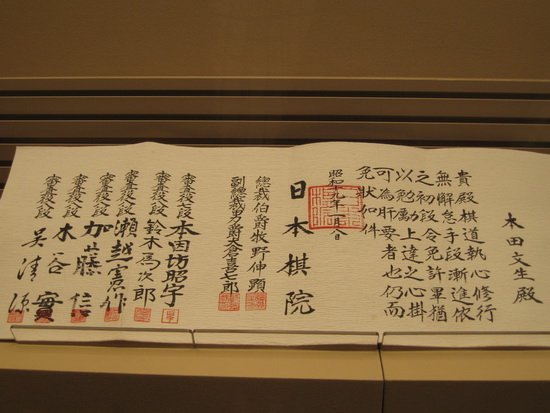 本田文生殿
貴殿棋道執心修行
無懈怠手段漸進依
之初段令免許畢猶
以勉勵上達之心掛
可為肝要者也仍而
免状如件
昭和十九年
日本棋院
總裁伯爵牧野伸顯
副總裁男爵大倉喜七郎
審査役 本因坊昭宇
審査役 鈴木為次郎
審査役 瀬越憲作
審査役 加藤信
審査役 木谷實
審査役 呉清源